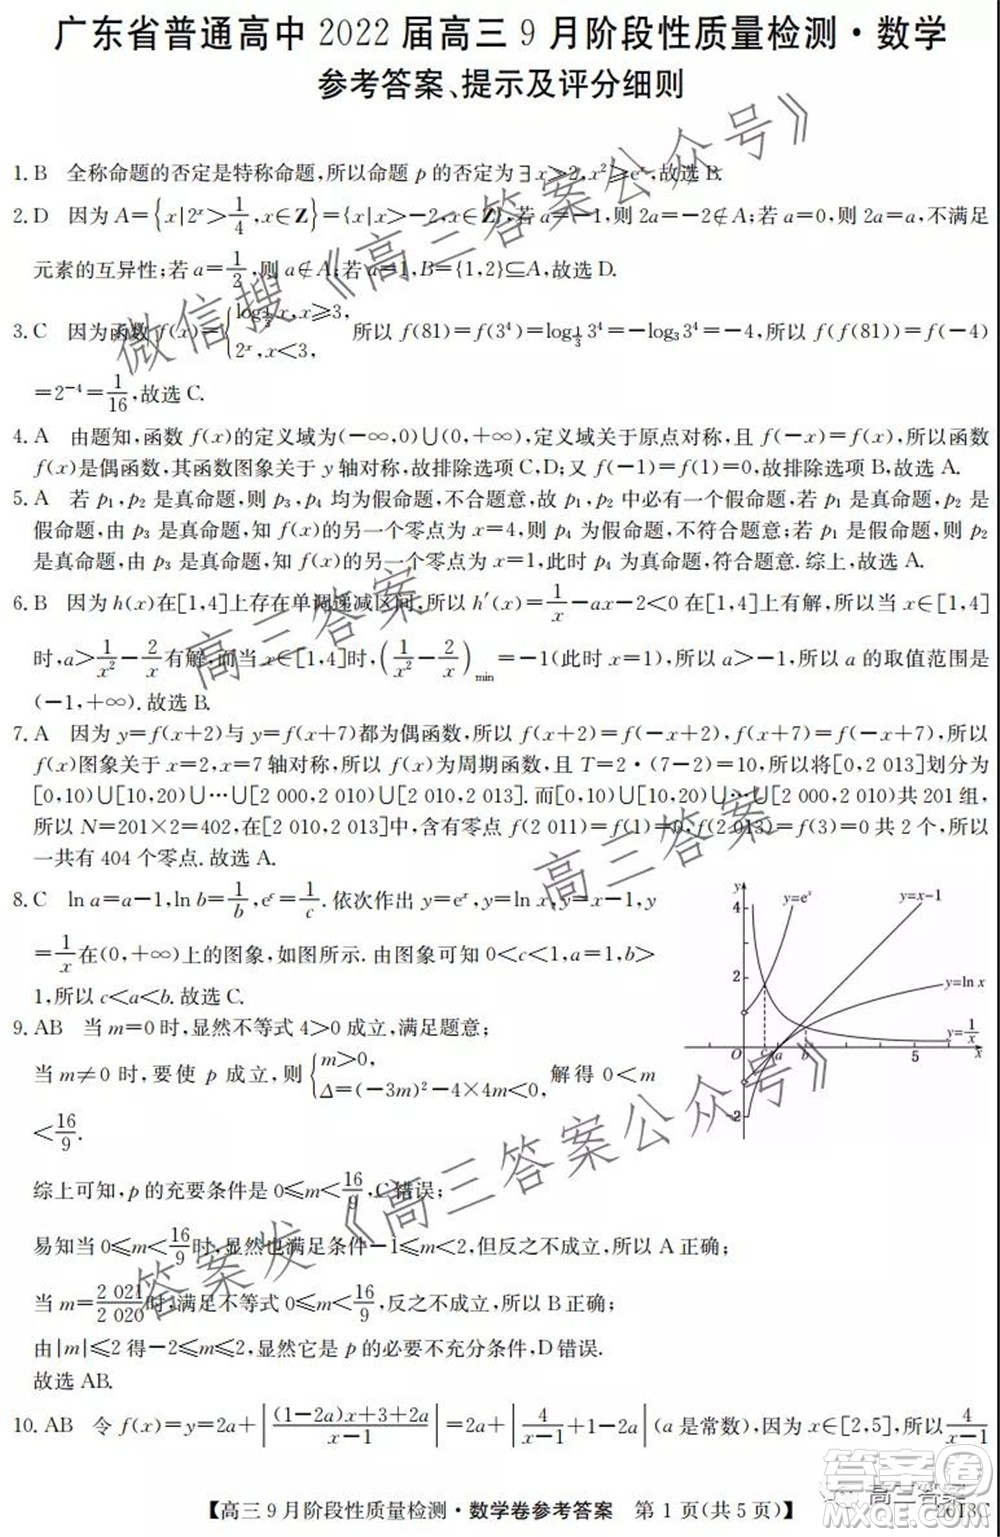 广东省普通高中 2022 届高三 9 月阶段性质量检测·数学
参考答案、提示及评分细则
1. B 全称命题的否定是特称命题,所以命题 p 的否定为∃x≥2,x²≥eˣ,故选 B.
2. D 因为 A={x|2ˣ>1/4,x∈Z}={x|x>−2,x∈Z},若 a=−1,则 2a=−2∉A;若 a=0,则 2a=a,不满足
元素的互异性;若 a=1/2,则 a∉A;若 a=1,B={1,2}⊆A,故选 D.
3. C 因为函数 f(x)={log_{1/3}x,x≥3, 2ˣ,x<3, 所以 f(81)=f(3⁴)=log_{1/3}3⁴=−log₃3⁴=−4,所以 f(f(81))=f(−4)
=2⁻⁴=1/16,故选 C.
4. A 由题知,函数 f(x)的定义域为(−∞,0)∪(0,+∞),定义域关于原点对称,且 f(−x)=f(x),所以函数
f(x)是偶函数,其函数图象关于 y 轴对称,故排除选项 C,D;又 f(−1)=f(1)=0,故排除选项 B,故选 A.
5. A 若 p₁,p₂ 是真命题,则 p₃,p₄ 均为假命题,不合题意,故 p₁,p₂ 中必有一个假命题,若 p₁ 是真命题,p₂ 是
假命题,由 p₃ 是真命题,知 f(x)的另一个零点为 x=4,则 p₄ 为假命题,不符合题意;若 p₁ 是假命题,p₂ 是
真命题,由 p₃ 是真命题,知 f(x)的另一个零点为 x=1,此时 p₄ 为真命题,符合题意.综上,故选 A.
6. B 因为 h(x)在[1,4]上存在单调递减区间,所以 h′(x)=1/x−ax−2<0 在[1,4]上有解,所以当 x∈[1,4]
时,a>1/x²−2/x有解,而当 x∈[1,4]时,(1/x²−2/x)min=−1(此时 x=1),所以 a>−1,所以 a 的取值范围是
(−1,+∞).故选 B.
7. A 因为 y=f(x+2)与 y=f(x+7)都为偶函数,所以 f(x+2)=f(−x+2),f(x+7)=f(−x+7),所以
f(x)图象关于 x=2,x=7 轴对称,所以 f(x)为周期函数,且 T=2·(7−2)=10,所以将[0,2 013]划分为
[0,10)∪[10,20)∪…∪[2 000,2 010)∪[2 010,2 013].而[0,10)∪[10,20)∪…∪[2 000,2 010)共 201 组,
所以 N=201×2=402,在[2 010,2 013]中,含有零点 f(2 011)=f(1)=0,f(2 013)=f(3)=0 共 2 个,所以
一共有 404 个零点.故选 A.
8. C ln a=a−1,ln b=1/b,eᶜ=1/c.依次作出 y=eˣ,y=ln x,y=x−1,y
=1/x在(0,+∞)上的图象,如图所示.由图象可知 0<c<1,a=1,b>
1,所以 c<a<b.故选 C.
y
4
2
O
−2
5
x
c
a
b
y=eˣ
y=x−1
y=ln x
y=1/x
9. AB 当 m=0 时,显然不等式 4>0 成立,满足题意;
当 m≠0 时,要使 p 成立,则{m>0, Δ=(−3m)²−4×4m<0, 解得 0<m
<16/9.
综上可知,p 的充要条件是 0≤m<16/9,C 错误;
易知当 0≤m<16/9时,显然也满足条件−1≤m<2,但反之不成立,所以 A 正确;
当 m=2 021/2 020时,满足不等式 0≤m<16/9,反之不成立,所以 B 正确;
由|m|≤2 得−2≤m≤2,显然它是 p 的必要不充分条件,D 错误.
故选 AB.
10. AB 令 f(x)=y=2a+|((1−2a)x+3+2a)/(x−1)|=2a+|4/(x−1)+1−2a|(a 是常数),因为 x∈[2,5],所以4/(x−1)
【高三 9 月阶段性质量检测·数学卷参考答案 第 1 页(共 5 页)】
2018C
微信搜《高三答案公众号》
高三答案
高三答案
答案发《高三答案公众号》
高三答案